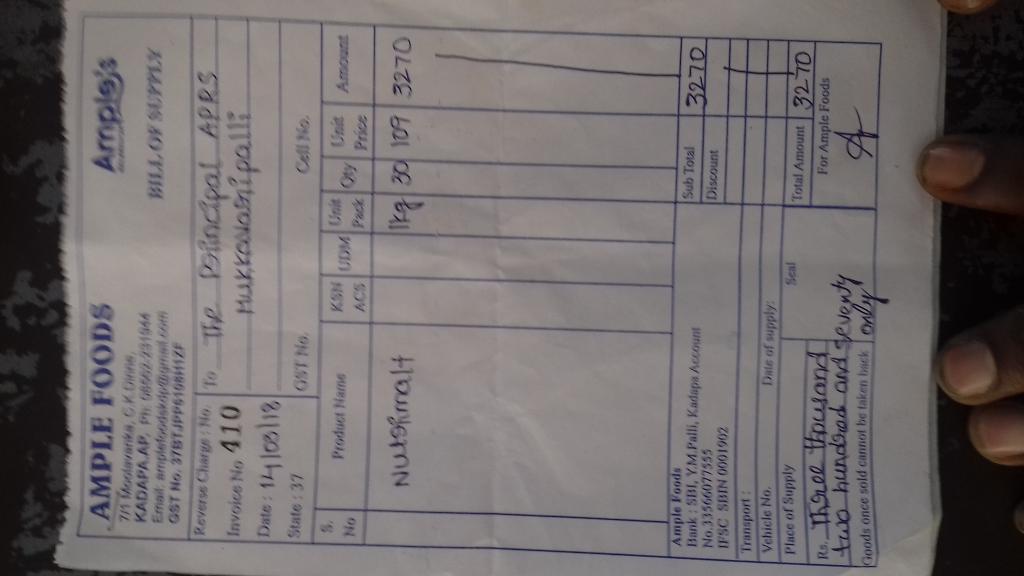 AMPLE FOODS
Ample's
7/1 Modavanka, C.K.Dinne,
KADAPA, AP, Ph: 08562-231944
Email: amplefoodskdp@gmail.com
GST No.
BILL OF SUPPLY
Reverse Charge : No.
Invoice No 410
Date : 14/03/18
State : 37
To The Principal APRS
Mukkavaripalli
GST No. Cell No.
S. No Product Name KSN ACS UDM Unit Pack Qty Unit Price Amount
Nutrimalt 1kg 30 109 3270
Ample Foods
Bank : SBI, Y.M.Palli, Kadapa Account
No.33566077555
IFSC SBIN 0001902
Sub Total 3270
Discount
Transport :
Vehicle No. Date of supply:
Place of Supply
Total Amount 3270
Rs. Three thousand
two hundred and seventy
only
Seal
For Ample Foods
Goods once sold cannot be taken back